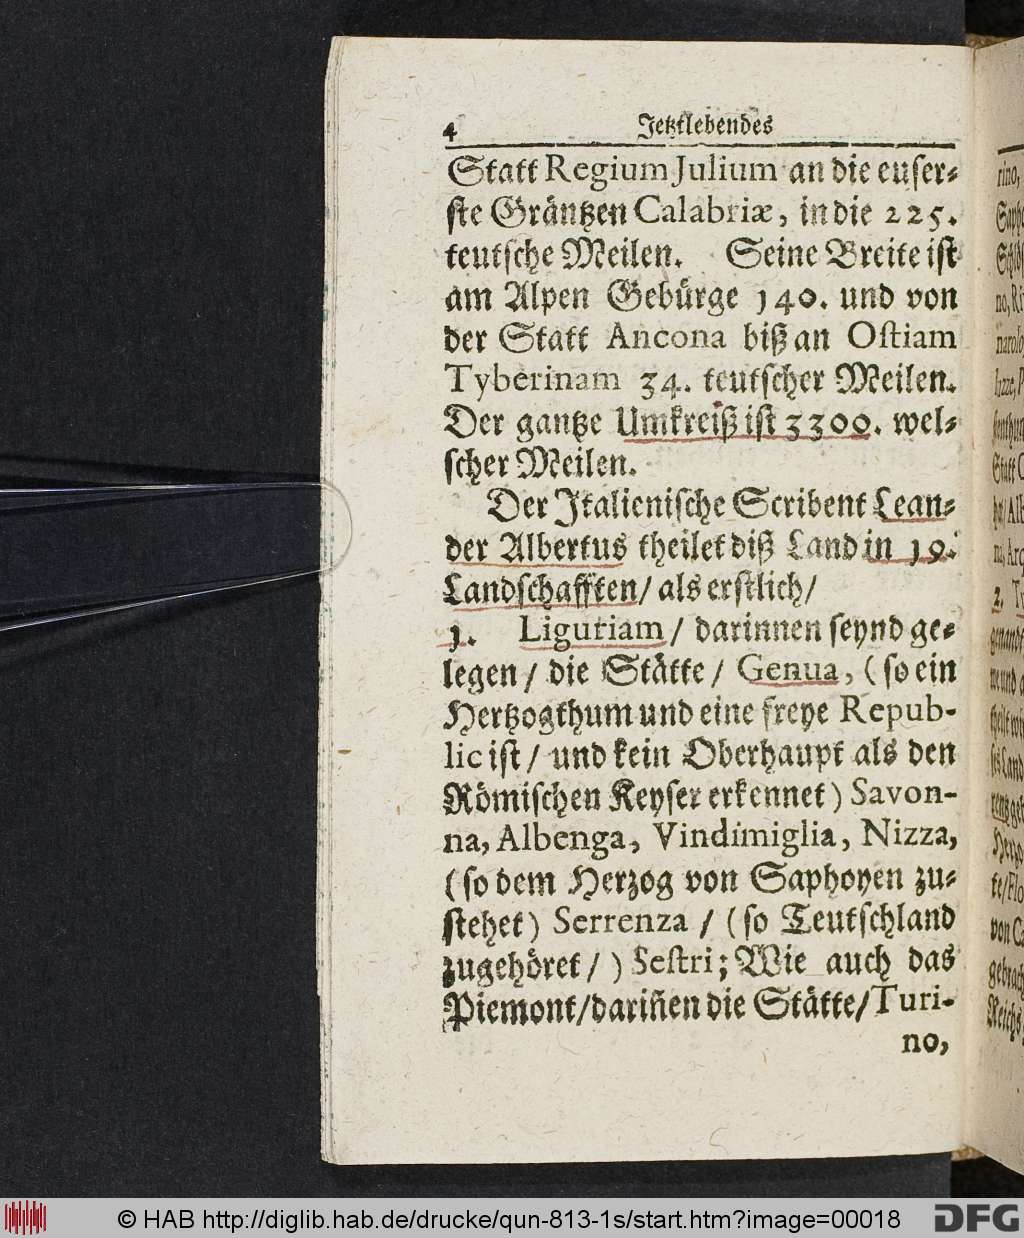 4 Jetztlebendes
Statt Regium Julium an die euser-
ste Gräntzen Calabriæ, in die 225.
teutsche Meilen. Seine Breite ist
am Alpen Gebürge 140. und von
der Statt Ancona biß an Ostiam
Tyberinam 34. teutscher Meilen.
Der gantze Umkreiß ist 3300. wel-
scher Meilen.
Der Italienische Scribent Lean-
der Albertus theilet diß Land in 19.
Landschafften/ als erstlich/
1. Liguriam / darinnen seynd ge-
legen / die Stätte / Genua, (so ein
Hertzogthum und eine freye Repub-
lic ist / und kein Oberhaupt als den
Römischen Keyser erkennet) Savon-
na, Albenga, Vindimiglia, Nizza,
(so dem Herzog von Saphoyen zu-
stehet) Serrenza / (so Teutschland
zugehöret / ) Sestri; Wie auch das
Piemont/darin̄en die Stätte/Turi-
no,
© HAB http://diglib.hab.de/drucke/qun-813-1s/start.htm?image=00018
DFG